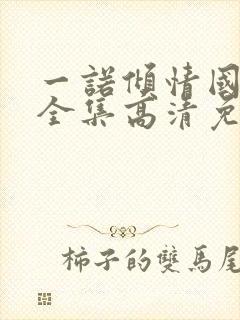 一諾傾情國
全集高清免
柿子的雙馬尾